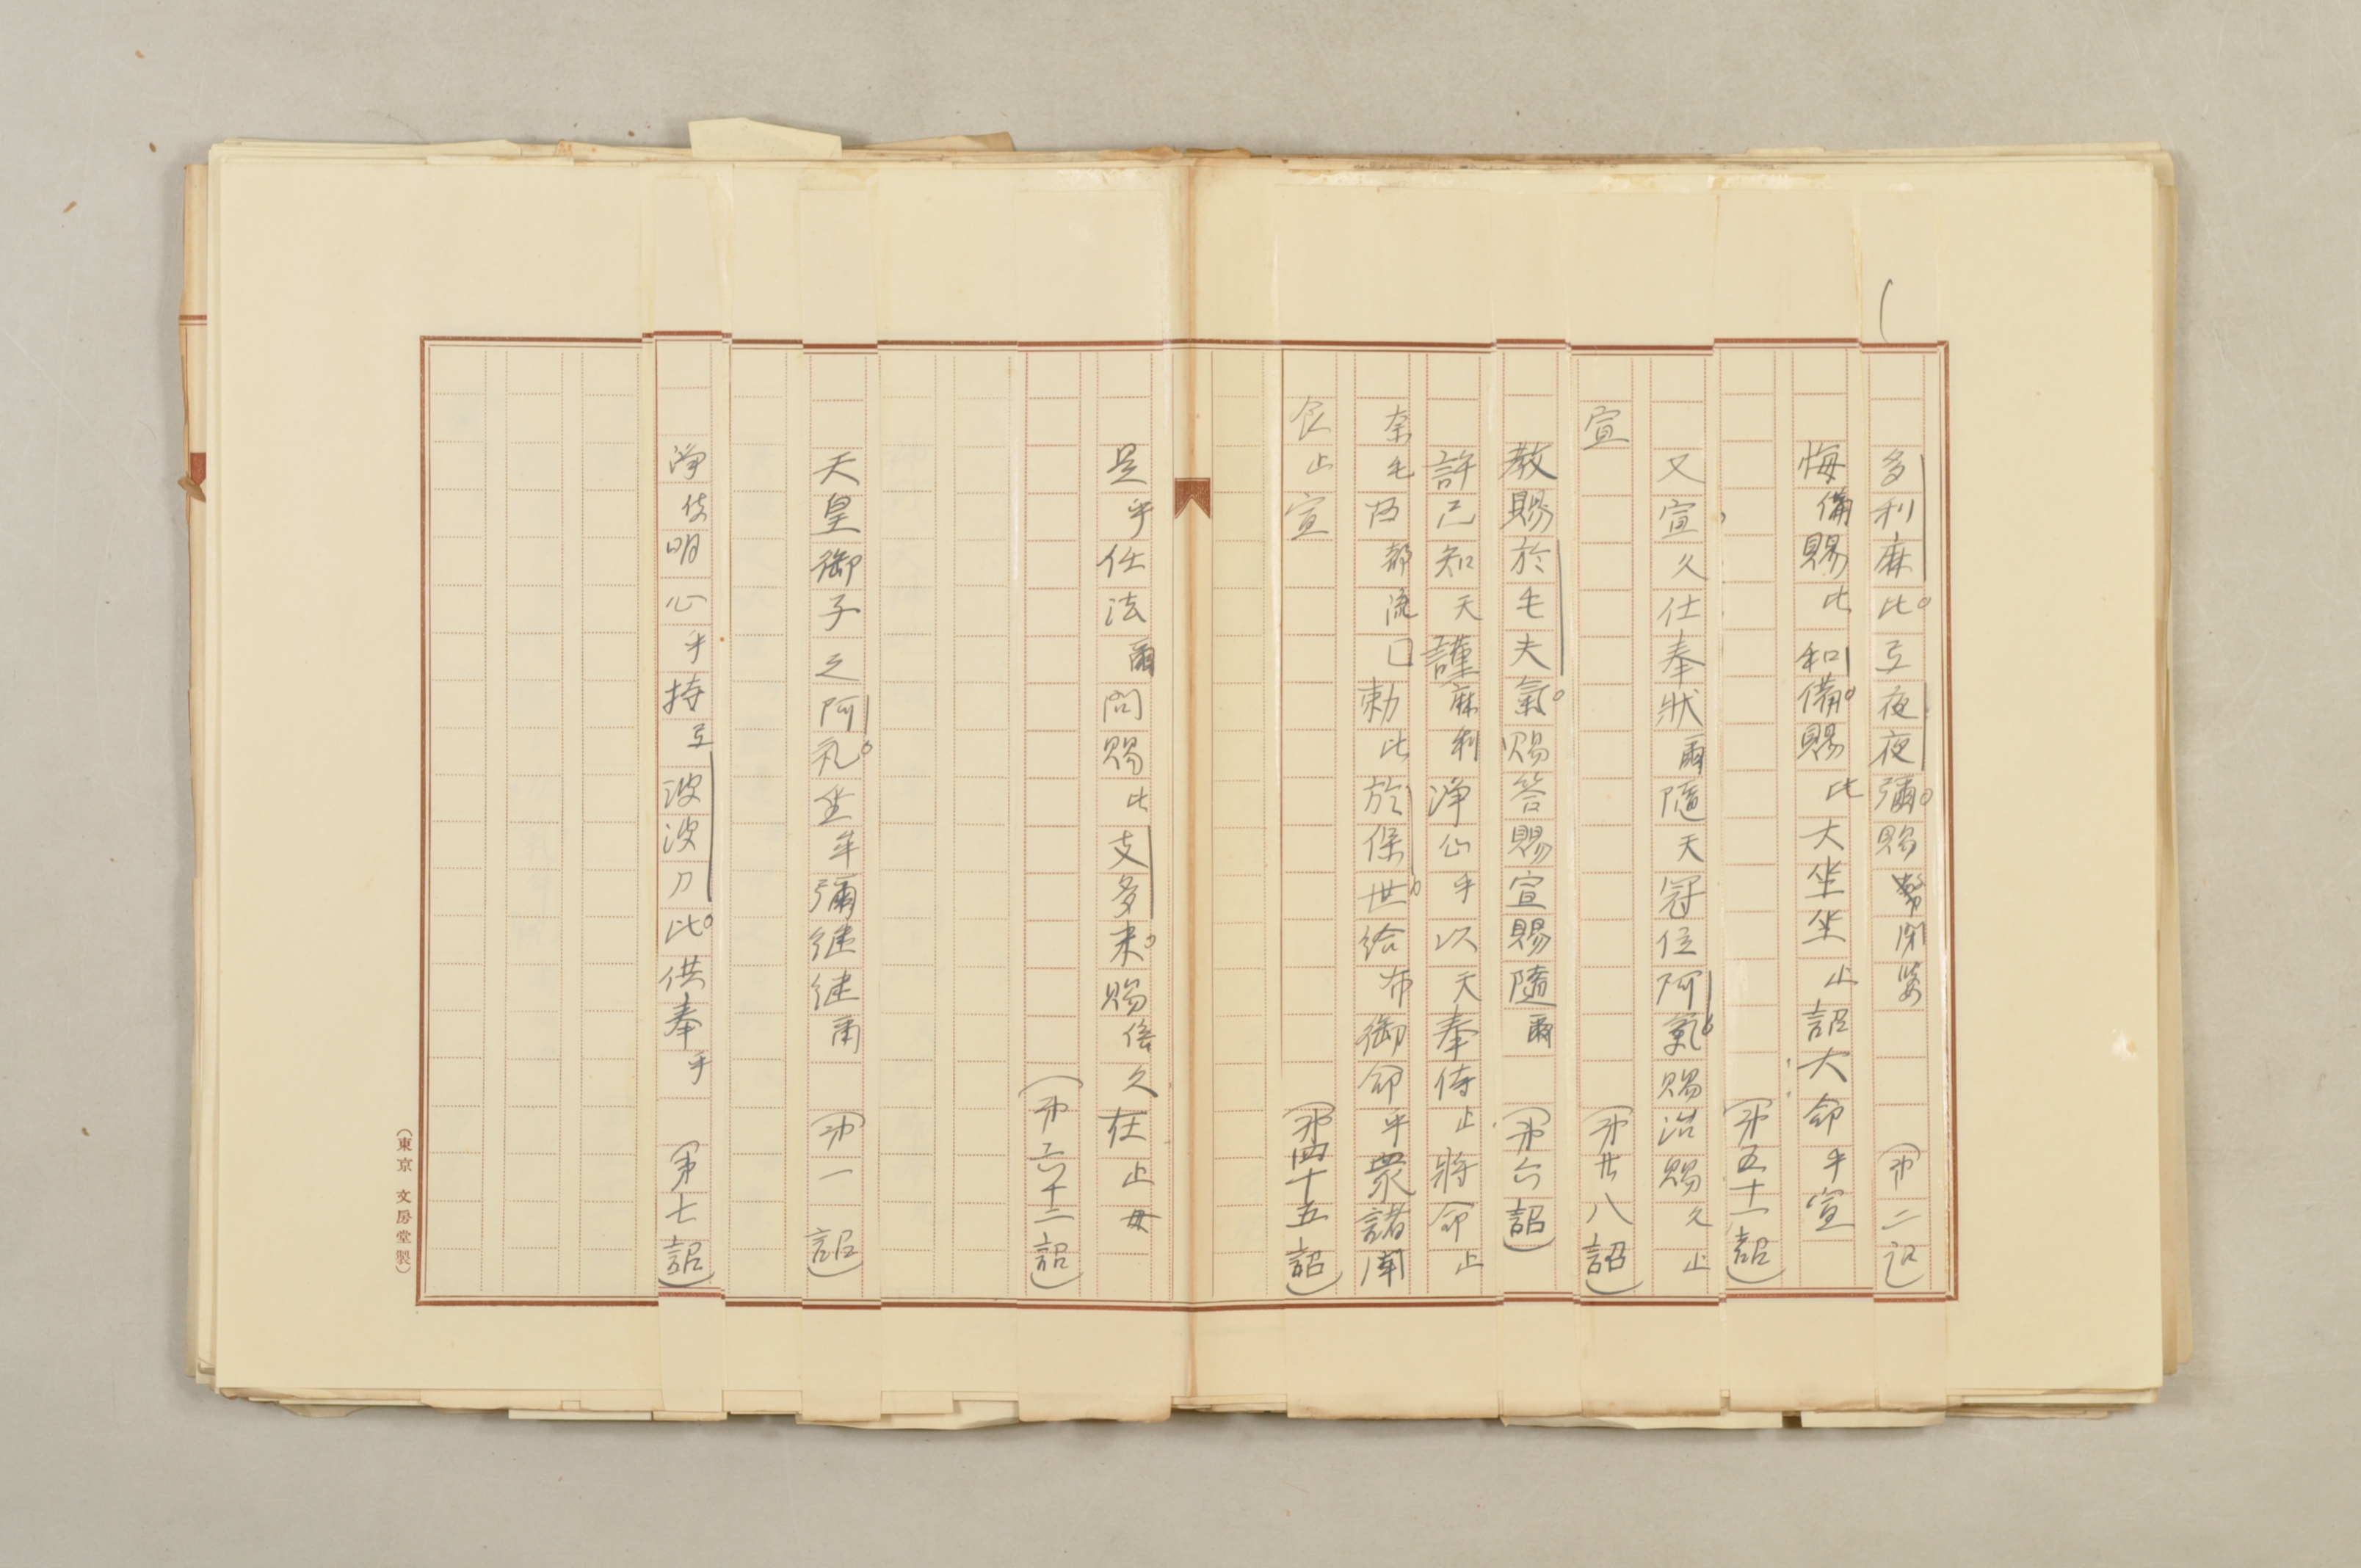 多利麻比弖夜夜彌賜
(第二詔)
悔備賜比和備賜比大坐坐止詔大命乎宣
(第五十一詔)
又宣久仕奉狀爾隨天冠位阿氣賜治賜久止
宣
(第廿八詔)
教賜於毛夫氣賜答賜宣賜隨爾
(第六詔)
許己知天謹麻利淨心乎以天奉侍止將命止
奈毛召都流勅比於保世給布御命乎衆諸聞
食止宣
(第四十五詔)
是乎任法爾問賜比支多米賜倍久在止母
(第六十二詔)
天皇御子之阿礼坐牟彌継継爾
(第一詔)
淨伎明心乎持弖波波刀比供奉乎
(第七詔)
(東京 文房堂製)